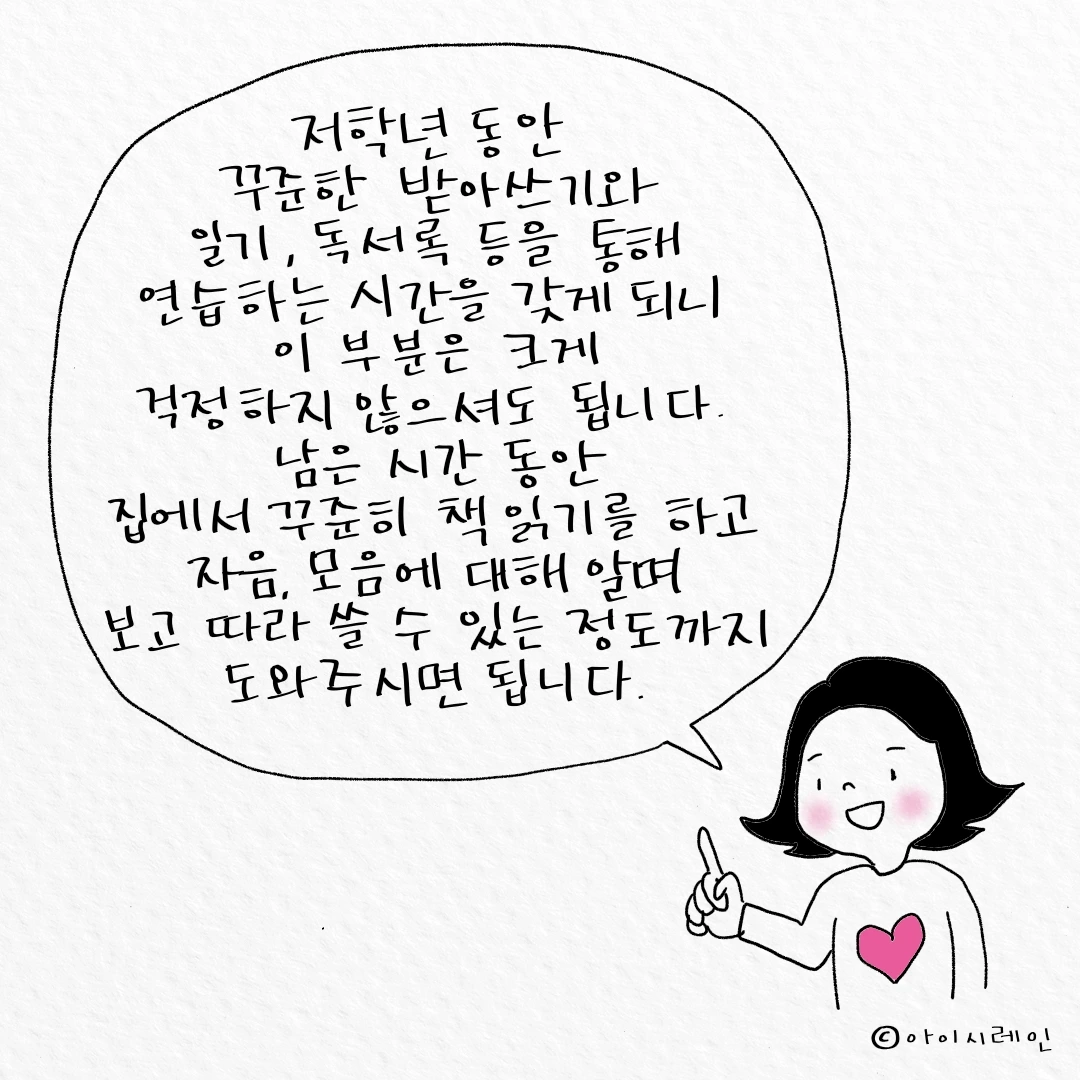 저학년 동안
꾸준한 받아쓰기와
일기, 독서록 등을 통해
연습하는 시간을 갖게 되니
이 부분은 크게
걱정하지 않으셔도 됩니다.
남은 시간 동안
집에서 꾸준히 책 읽기를 하고
자음, 모음에 대해 알며
보고 따라 쓸 수 있는 정도까지
도와주시면 됩니다.
©아이시레인